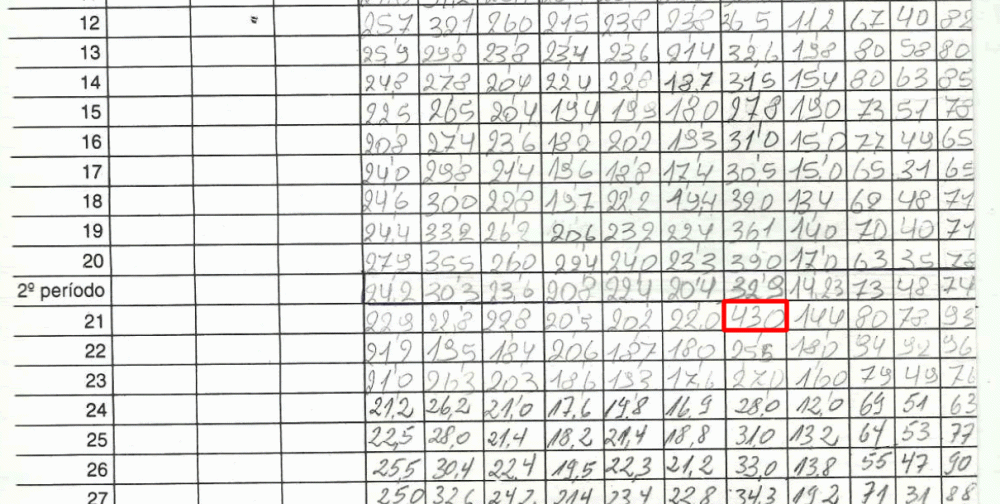 12 257 321 260 215 238 238 265 112 67 40 82
13 259 298 238 234 236 214 32,6 198 80 58 80
14 248 278 204 224 228 18.7 315 154 80 63 85
15 225 265 204 194 199 180 278 190 73 51 78
16 208 274 236 182 202 193 310 150 77 49 65
17 240 298 214 196 188 174 305 150 65 31 65
18 246 300 228 197 222 194 320 134 68 48 71
19 244 332 262 206 232 224 361 140 70 40 71
20 279 355 260 224 240 233 390 170 63 35 78
2º período 24,2 303 23,6 208 224 204 329 14,23 73 48 74
21 229 228 228 205 202 220 430 144 80 78 93
22 212 195 184 206 187 180 255 180 94 92 96
23 210 263 203 186 193 17,6 270 160 79 49 76
24 21,2 26,2 21,0 17,6 19,8 16,9 28,0 12,0 69 51 63
25 22,5 28,0 21,4 18,2 21,4 18,8 31,0 13,2 64 53 77
26 25,5 30,4 22,4 19,5 22,3 21,2 33,0 13,8 55 47 90
27 250 32,6 24,2 21,4 23,4 22,8 34,3 19,2 71 31 88